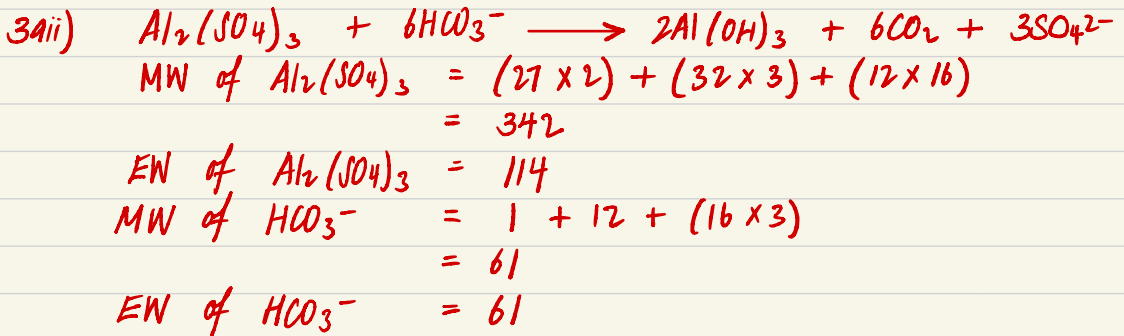 3aii) Al₂(SO₄)₃ + 6HCO₃⁻ ⟶ 2Al(OH)₃ + 6CO₂ + 3SO₄²⁻
MW of Al₂(SO₄)₃ = (27 × 2) + (32 × 3) + (12 × 16)
= 342
EW of Al₂(SO₄)₃ = 114
MW of HCO₃⁻ = 1 + 12 + (16 × 3)
= 61
EW of HCO₃⁻ = 61